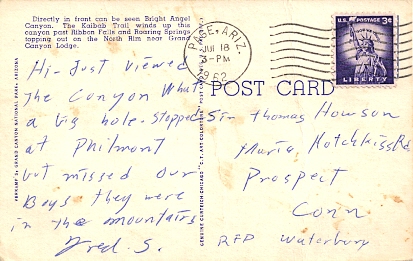 Directly in front can be seen Bright Angel
Canyon. The Kaibab Trail winds up this
canyon past Ribbon Falls and Roaring Springs,
topping out on the North Rim near Grand
Canyon Lodge.
PAGE, ARIZ.
JUL 18
3-PM
1962
U.S. POSTAGE 3¢
LIBERTY
POST CARD
Hi- Just viewed
the Canyon What
a big hole. Stopped
at Philmont
but missed our
Boys they were
in the mountains
Fred. S.
Sir Thomas Howson
Maria Hotchkiss Rd
Prospect
Conn
RFD Waterbury
GRAND CANYON NATIONAL PARK, ARIZONA
GENUINE CURTEICH-CHICAGO "C.T. ART-COLORTONE" POST CARD